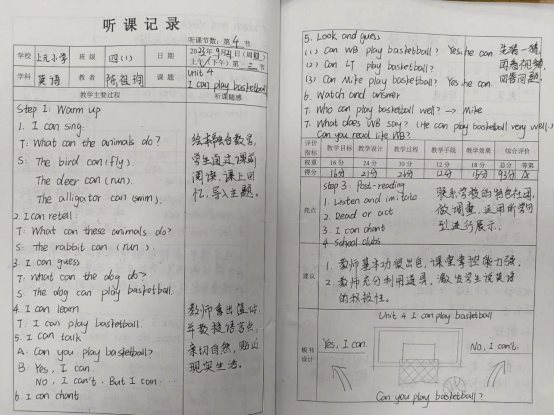 听课记录
听课节数:第 4 节
学校 上元小学 班级 四(1) 日期 2023年9月21日(周四)
上午(下午) 第二节
学科 英语 教者 课题 Unit 4
I can play basketball
教学主要过程 听课随感
Step 1: Warm up
1. I can sing.
T: What can the animals do?
S: The bird can (fly).
The deer can (run).
The alligator can (swim).
2. I can retell:
T: What can these animals do?
S: The rabbit can (run).
3. I can guess
T: What can the dog do?
S: The dog can play basketball.
4. I can learn
T: I can play basketball.
5. I can talk
A: Can you play basketball?
B: Yes, I can.
No, I can't. But I can ...
6. I can chant
绘本融合教学,
学生通过课前
阅读,课上回
忆,导入主题。
教师拿出篮球,
亲切自然,贴近
现实生活。
5. Look and guess
(1) Can WB play basketball? Yes, he can.
(2) Can LT play basketball?
(3) Can Mike play basketball? Yes he can.
生猜一猜,
回答问题。
6. Watch and answer
7. Who can play basketball well? → Mike
7. What does WB say? (He can play basketball very well)
Can you read like WB?
评价指标 教学目标 教学设计 教学过程 教学手段 教学效果 综合评价
权重 16分 24分 30分 12分 18分 总分 等第
得分 16分 21分 26分 12分 18分 93分 A
亮点
step 3: Post-reading
1. Listen and imitate
2. Read or act
3. I can chant
4. School clubs
联系学校的特色社团,
做调查,运用所学句
型进行展示。
建议
1. 教师基本功很出色,课堂掌控能力强。
2. 教师充分利用道具,激发学生说英语
的积极性。
板书设计
Unit 4 I can play basketball
Yes, I can.
No, I can't.
Can you play basketball?